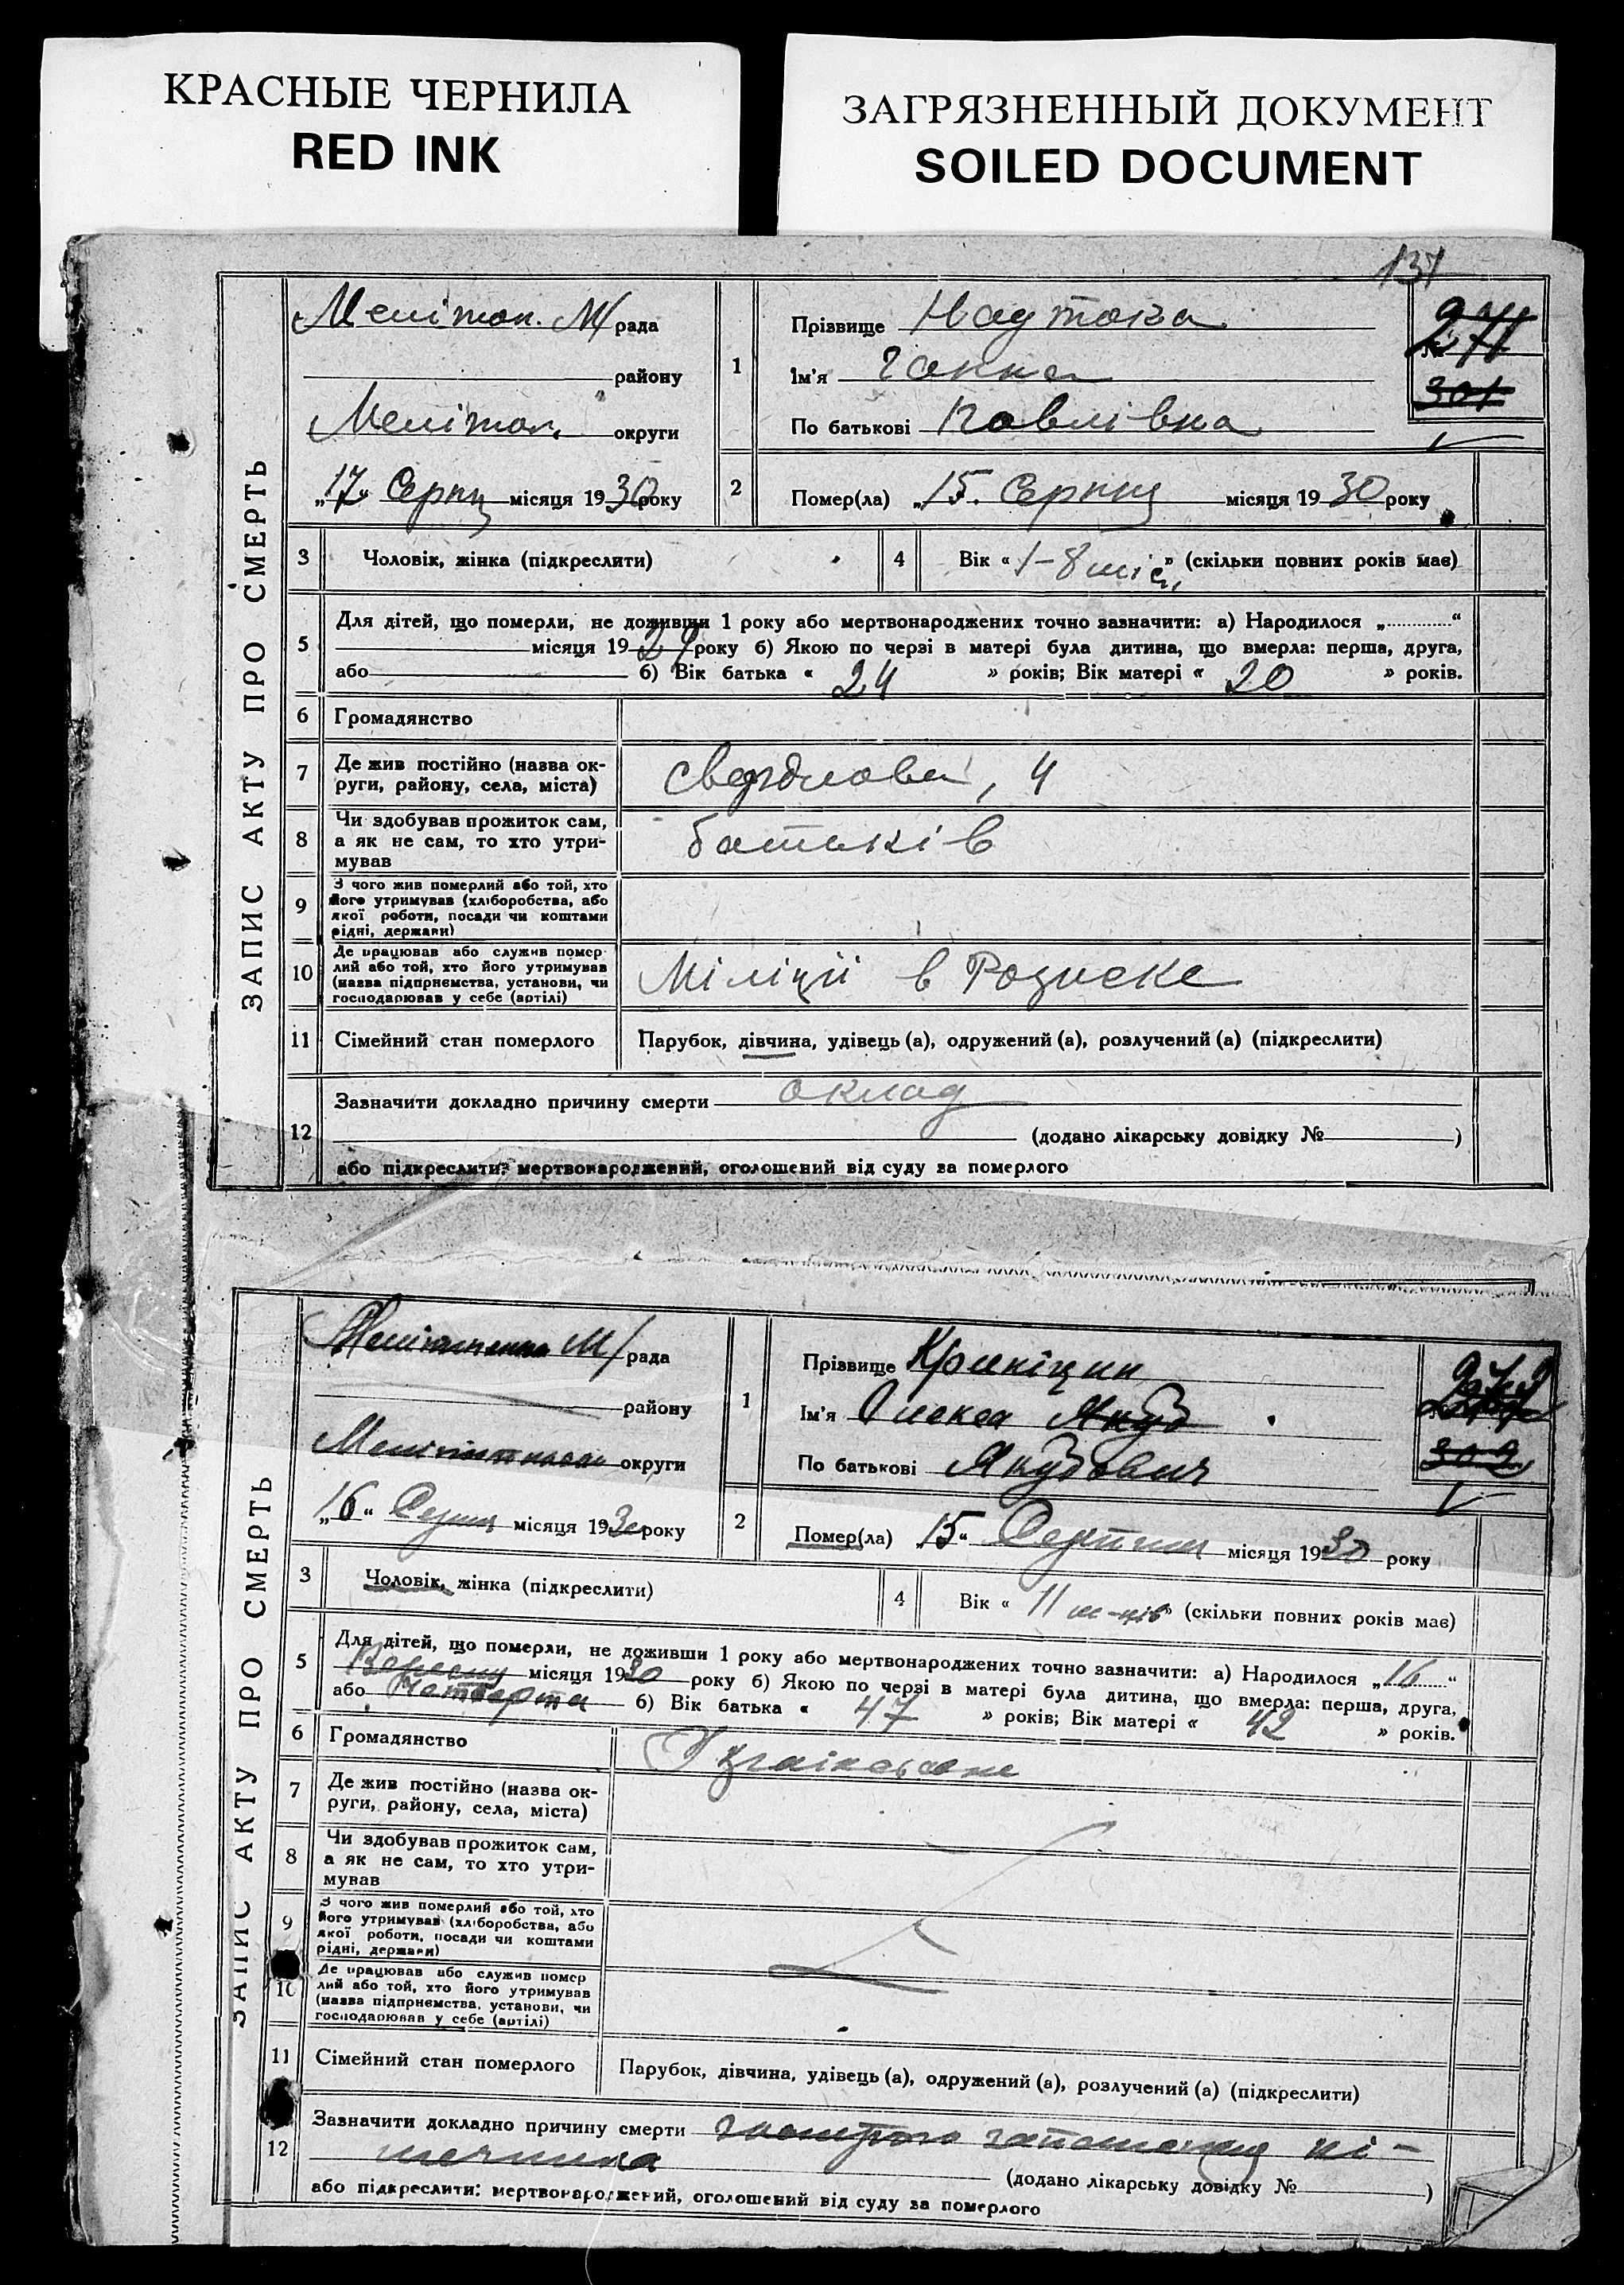 КРАСНЫЕ ЧЕРНИЛА
RED INK
ЗАГРЯЗНЕННЫЙ ДОКУМЕНТ
SOILED DOCUMENT
137
ЗАПИС АКТУ ПРО СМЕРТЬ
Мелітоп. М/ рада
району
Мелітоп. округи
„17“ Серпц місяця 1930 року
1
Прізвище Надтока
Ім'я Ганна
По батькові Павлівна
277
301
2
Помер(ла) „15. Серпц місяця 1930 року
3 Чоловік, жінка (підкреслити)
4 Вік « 1-8 міс. » (скільки повних років має)
5 Для дітей, що померли, не доживши 1 року або мертвонароджених точно зазначити: а) Народилося „ “
місяця 1929 року б) Якою по черзі в матері була дитина, що вмерла: перша, друга,
або б) Вік батька « 24 » років; Вік матері « 20 » років.
6 Громадянство
7 Де жив постійно (назва округи, району, села, міста) Свердлова, 4
8 Чи здобував прожиток сам,
а як не сам, то хто утримував батьків
9 З чого жив померлий або той, хто
його утримував (хліборобства, або
якої роботи, посади чи коштами
рідні, держави)
10 Де працював або служив померлий або той, хто його утримував
(назва підприємства, установи, чи
господарював у себе (артілі) Міліції в Розиске
11 Сімейний стан померлого Парубок, дівчина, удівець (а), одружений (а), розлучений (а) (підкреслити)
12 Зазначити докладно причину смерти
(додано лікарську довідку № )
або підкреслити: мертвонароджений, оголошений від суду за померлого
ЗАПИС АКТУ ПРО СМЕРТЬ
М/ рада
району
округи
„16“ місяця 1930 року
1
Прізвище Криніцин
Ім'я Олекса Якуб
По батькові Якубович
302
2
Помер(ла) „15“ Серпня місяця 1930 року
3 Чоловік, жінка (підкреслити)
4 Вік « 11 м-ців » (скільки повних років має)
5 Для дітей, що померли, не доживши 1 року або мертвонароджених точно зазначити: а) Народилося „16“
Вересня місяця 1930 року б) Якою по черзі в матері була дитина, що вмерла: перша, друга,
або четверта б) Вік батька « 47 » років; Вік матері « 42 » років.
6 Громадянство Українське
7 Де жив постійно (назва округи, району, села, міста)
8 Чи здобував прожиток сам,
а як не сам, то хто утримував
9 З чого жив померлий або той, хто
його утримував (хліборобства, або
якої роботи, посади чи коштами
рідні, держави)
10 Де працював або служив померлий або той, хто його утримував
(назва підприємства, установи, чи
господарював у себе (артілі)
11 Сімейний стан померлого Парубок, дівчина, удівець (а), одружений (а), розлучений (а) (підкреслити)
12 Зазначити докладно причину смерти гостро запалення кі-
шечника
(додано лікарську довідку № )
або підкреслити: мертвонароджений, оголошений від суду за померлого